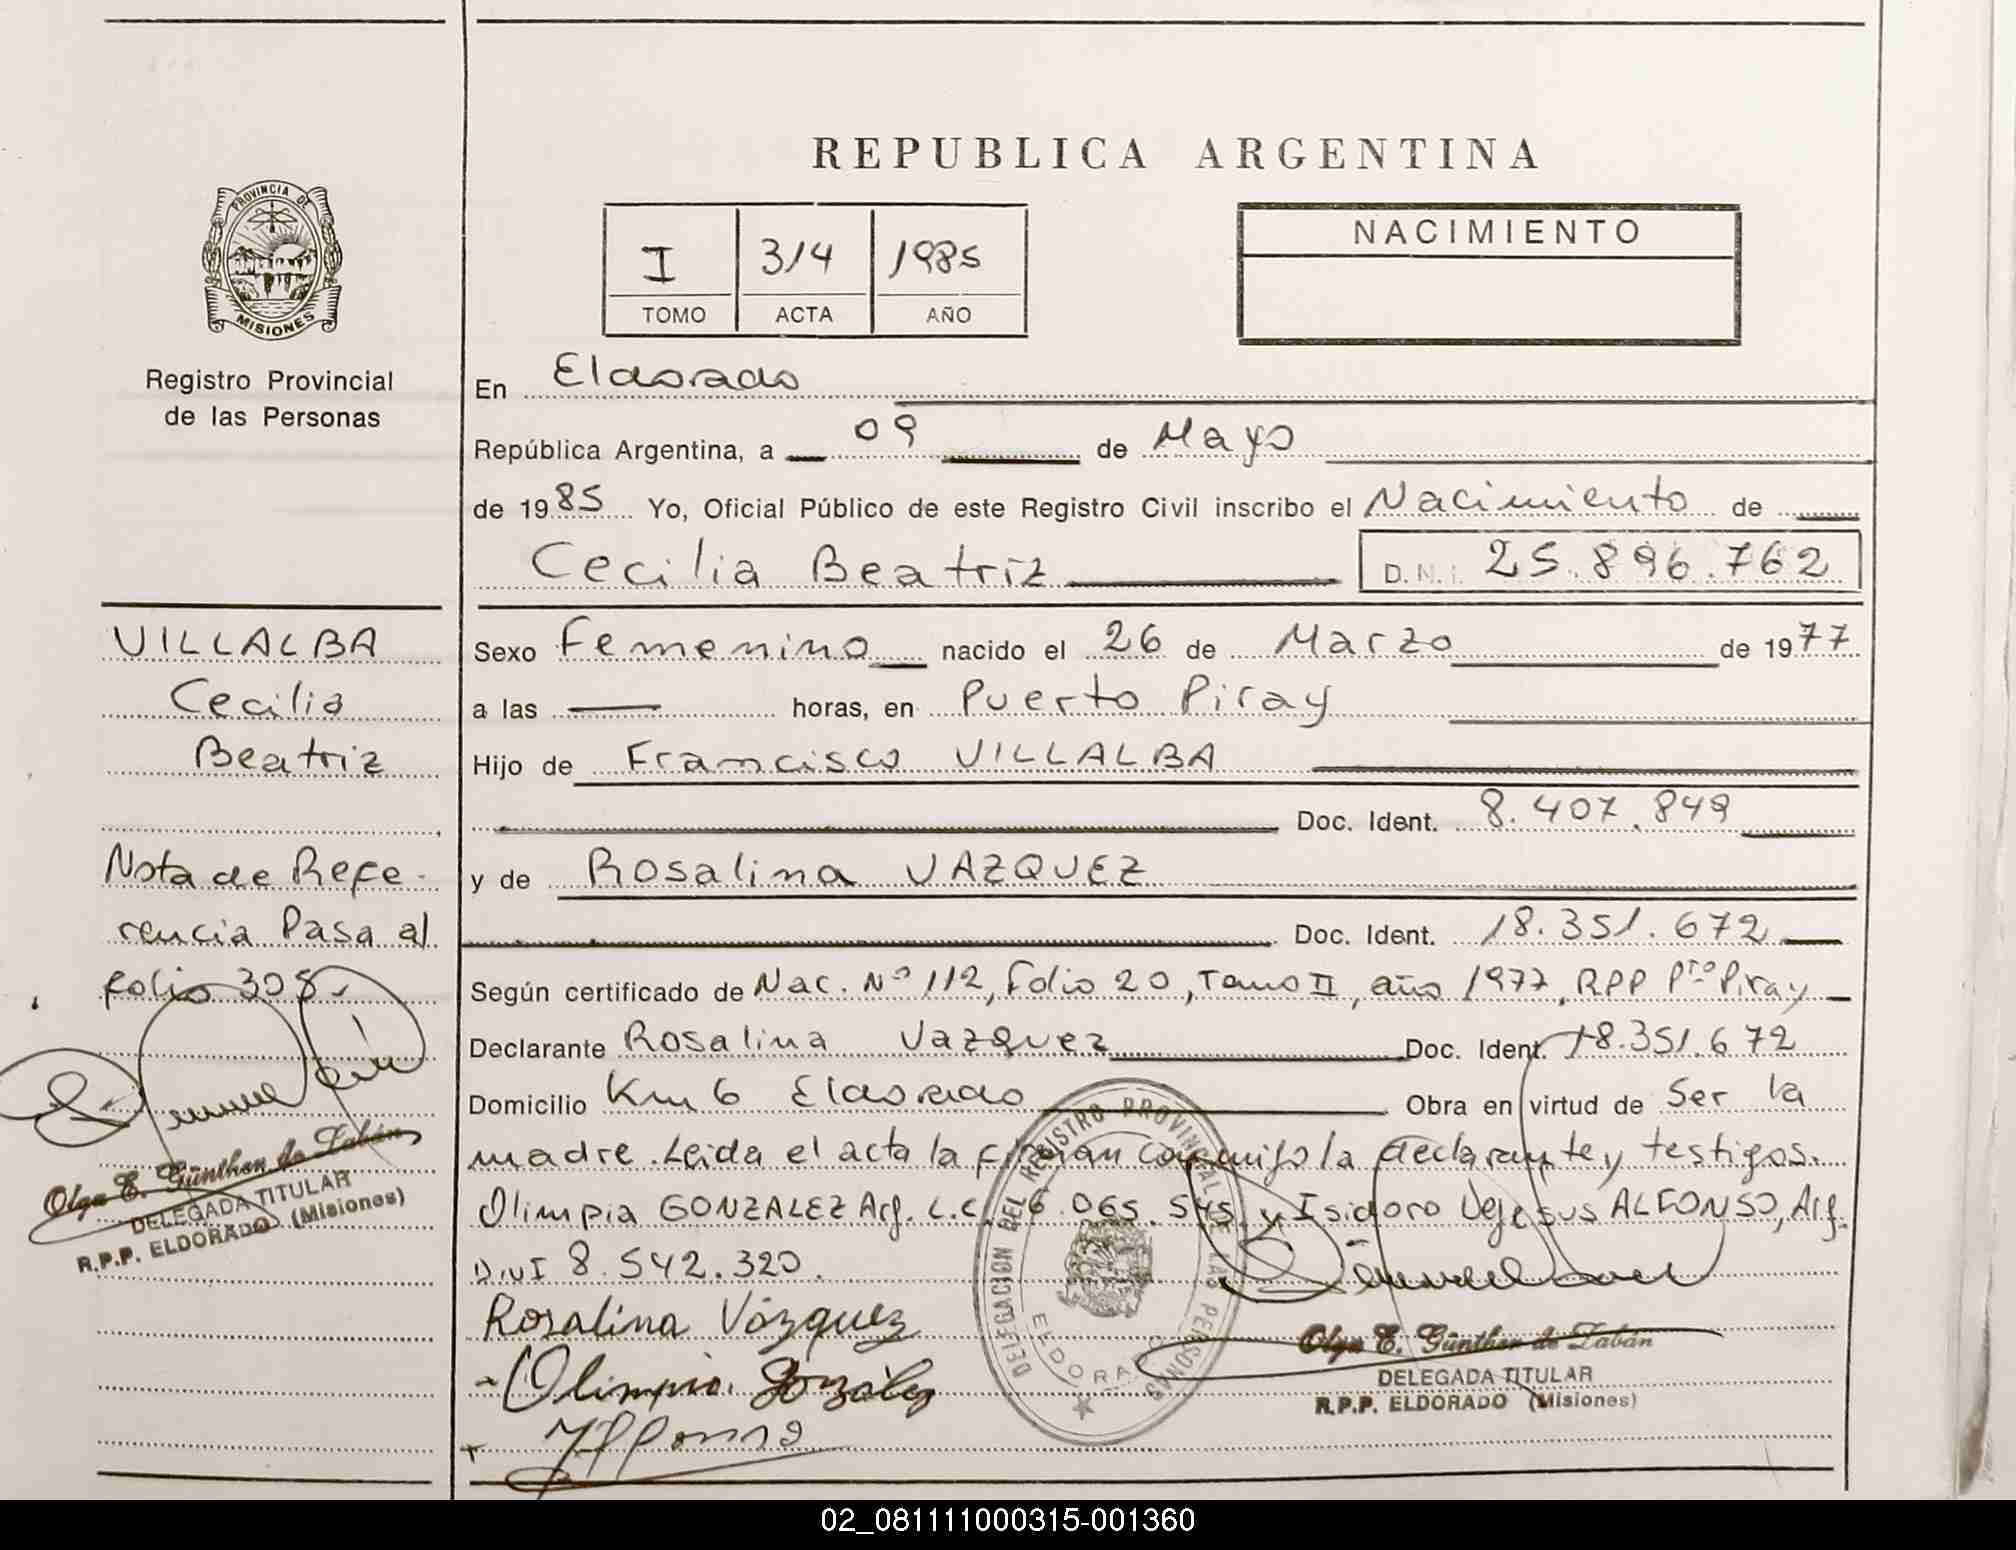 REPUBLICA ARGENTINA
PROVINCIA DE
MISIONES
Registro Provincial
de las Personas
I 314 1985
TOMO ACTA AÑO
NACIMIENTO
En Eldorado
República Argentina, a 09 de Mayo
de 1985 Yo, Oficial Público de este Registro Civil inscribo el Nacimiento de
Cecilia Beatriz D.N.I. 25.896.762
VILLALBA
Cecilia
Beatriz
Nota de Refe-
rencia Pasa al
folio 308
Olga E. Günther de Zabán
DELEGADA TITULAR
R.P.P. ELDORADO (Misiones)
Sexo Femenino nacido el 26 de Marzo de 1977
a las — horas, en Puerto Piray
Hijo de Francisco VILLALBA
Doc. Ident. 8.407.849
y de Rosalina VAZQUEZ
Doc. Ident. 18.351.672
Según certificado de Nac. Nº 112, Folio 20, Tomo II, año 1977, RPP Pto Piray
Declarante Rosalina Vazquez Doc. Ident. 18.351.672
Domicilio Km 6 Eldorado Obra en virtud de Ser la
madre. Leida el acta la firman conmigo la declarante y testigos.
Olimpia GONZALEZ Arg. L.C. 6.065.545 y Isidoro Dejesus ALFONSO, Arg.
DNI 8.542.320.
Rosalina Vázquez
Olimpia González
Alfonso
DELEGACION DEL REGISTRO PROVINCIAL DE LAS PERSONAS
ELDORADO
Olga E. Günther de Zabán
DELEGADA TITULAR
R.P.P. ELDORADO (Misiones)
02_081111000315-001360